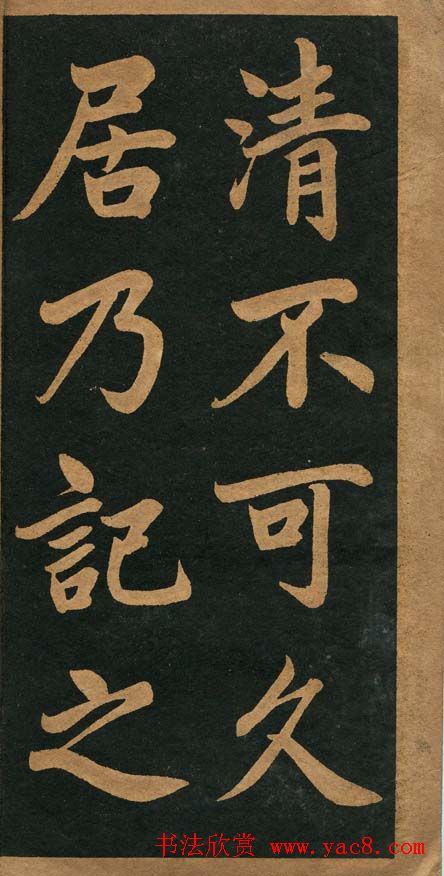 清不可久
居乃記之
书法欣赏 www.yac8.com